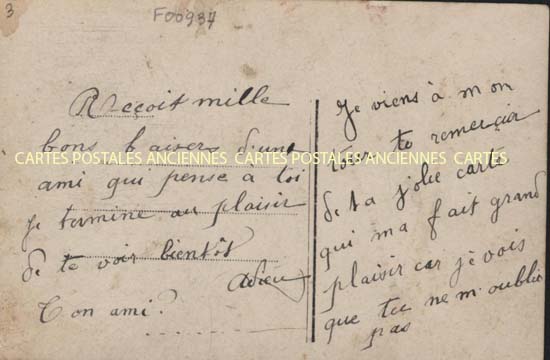 3
F00937
Reçoit mille
bons baisers d'une
CARTES POSTALES ANCIENNES CARTES POSTALES ANCIENNES CARTES
ami qui pense à toi
je termine au plaisir
de te voir bientôt
Adieu
Ton ami?
Je viens à mon
tour te remercir
de ta jolie carte
qui ma fait grand
plaisir car je vois
que tu ne m'oublie
pas